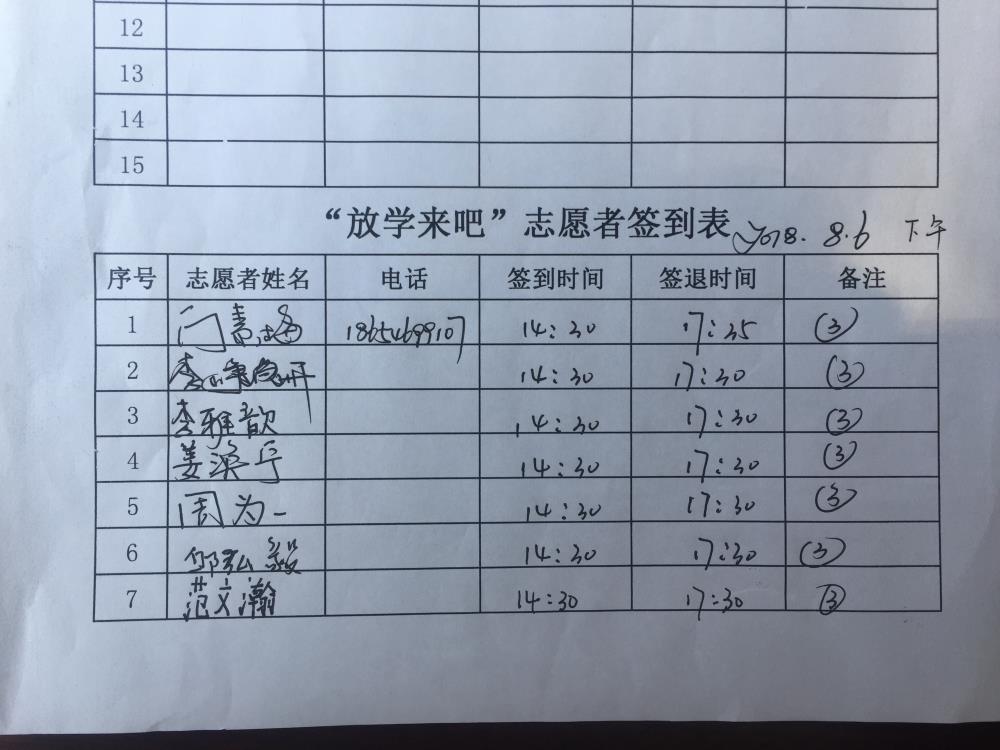 12
13
14
15
“放学来吧”志愿者签到表 2018. 8.6 下午
序号 志愿者姓名 电话 签到时间 签退时间 备注
1 门 18654699107 14:30 17:35 ③
2 李 14:30 17:30 ③
3 李雅歆 14:30 17:30 ③
4 姜涣宇 14:30 17:30 ③
5 周为一 14:30 17:30 ③
6 邹弘毅 14:30 17:30 ③
7 范文瀚 14:30 17:30 ③